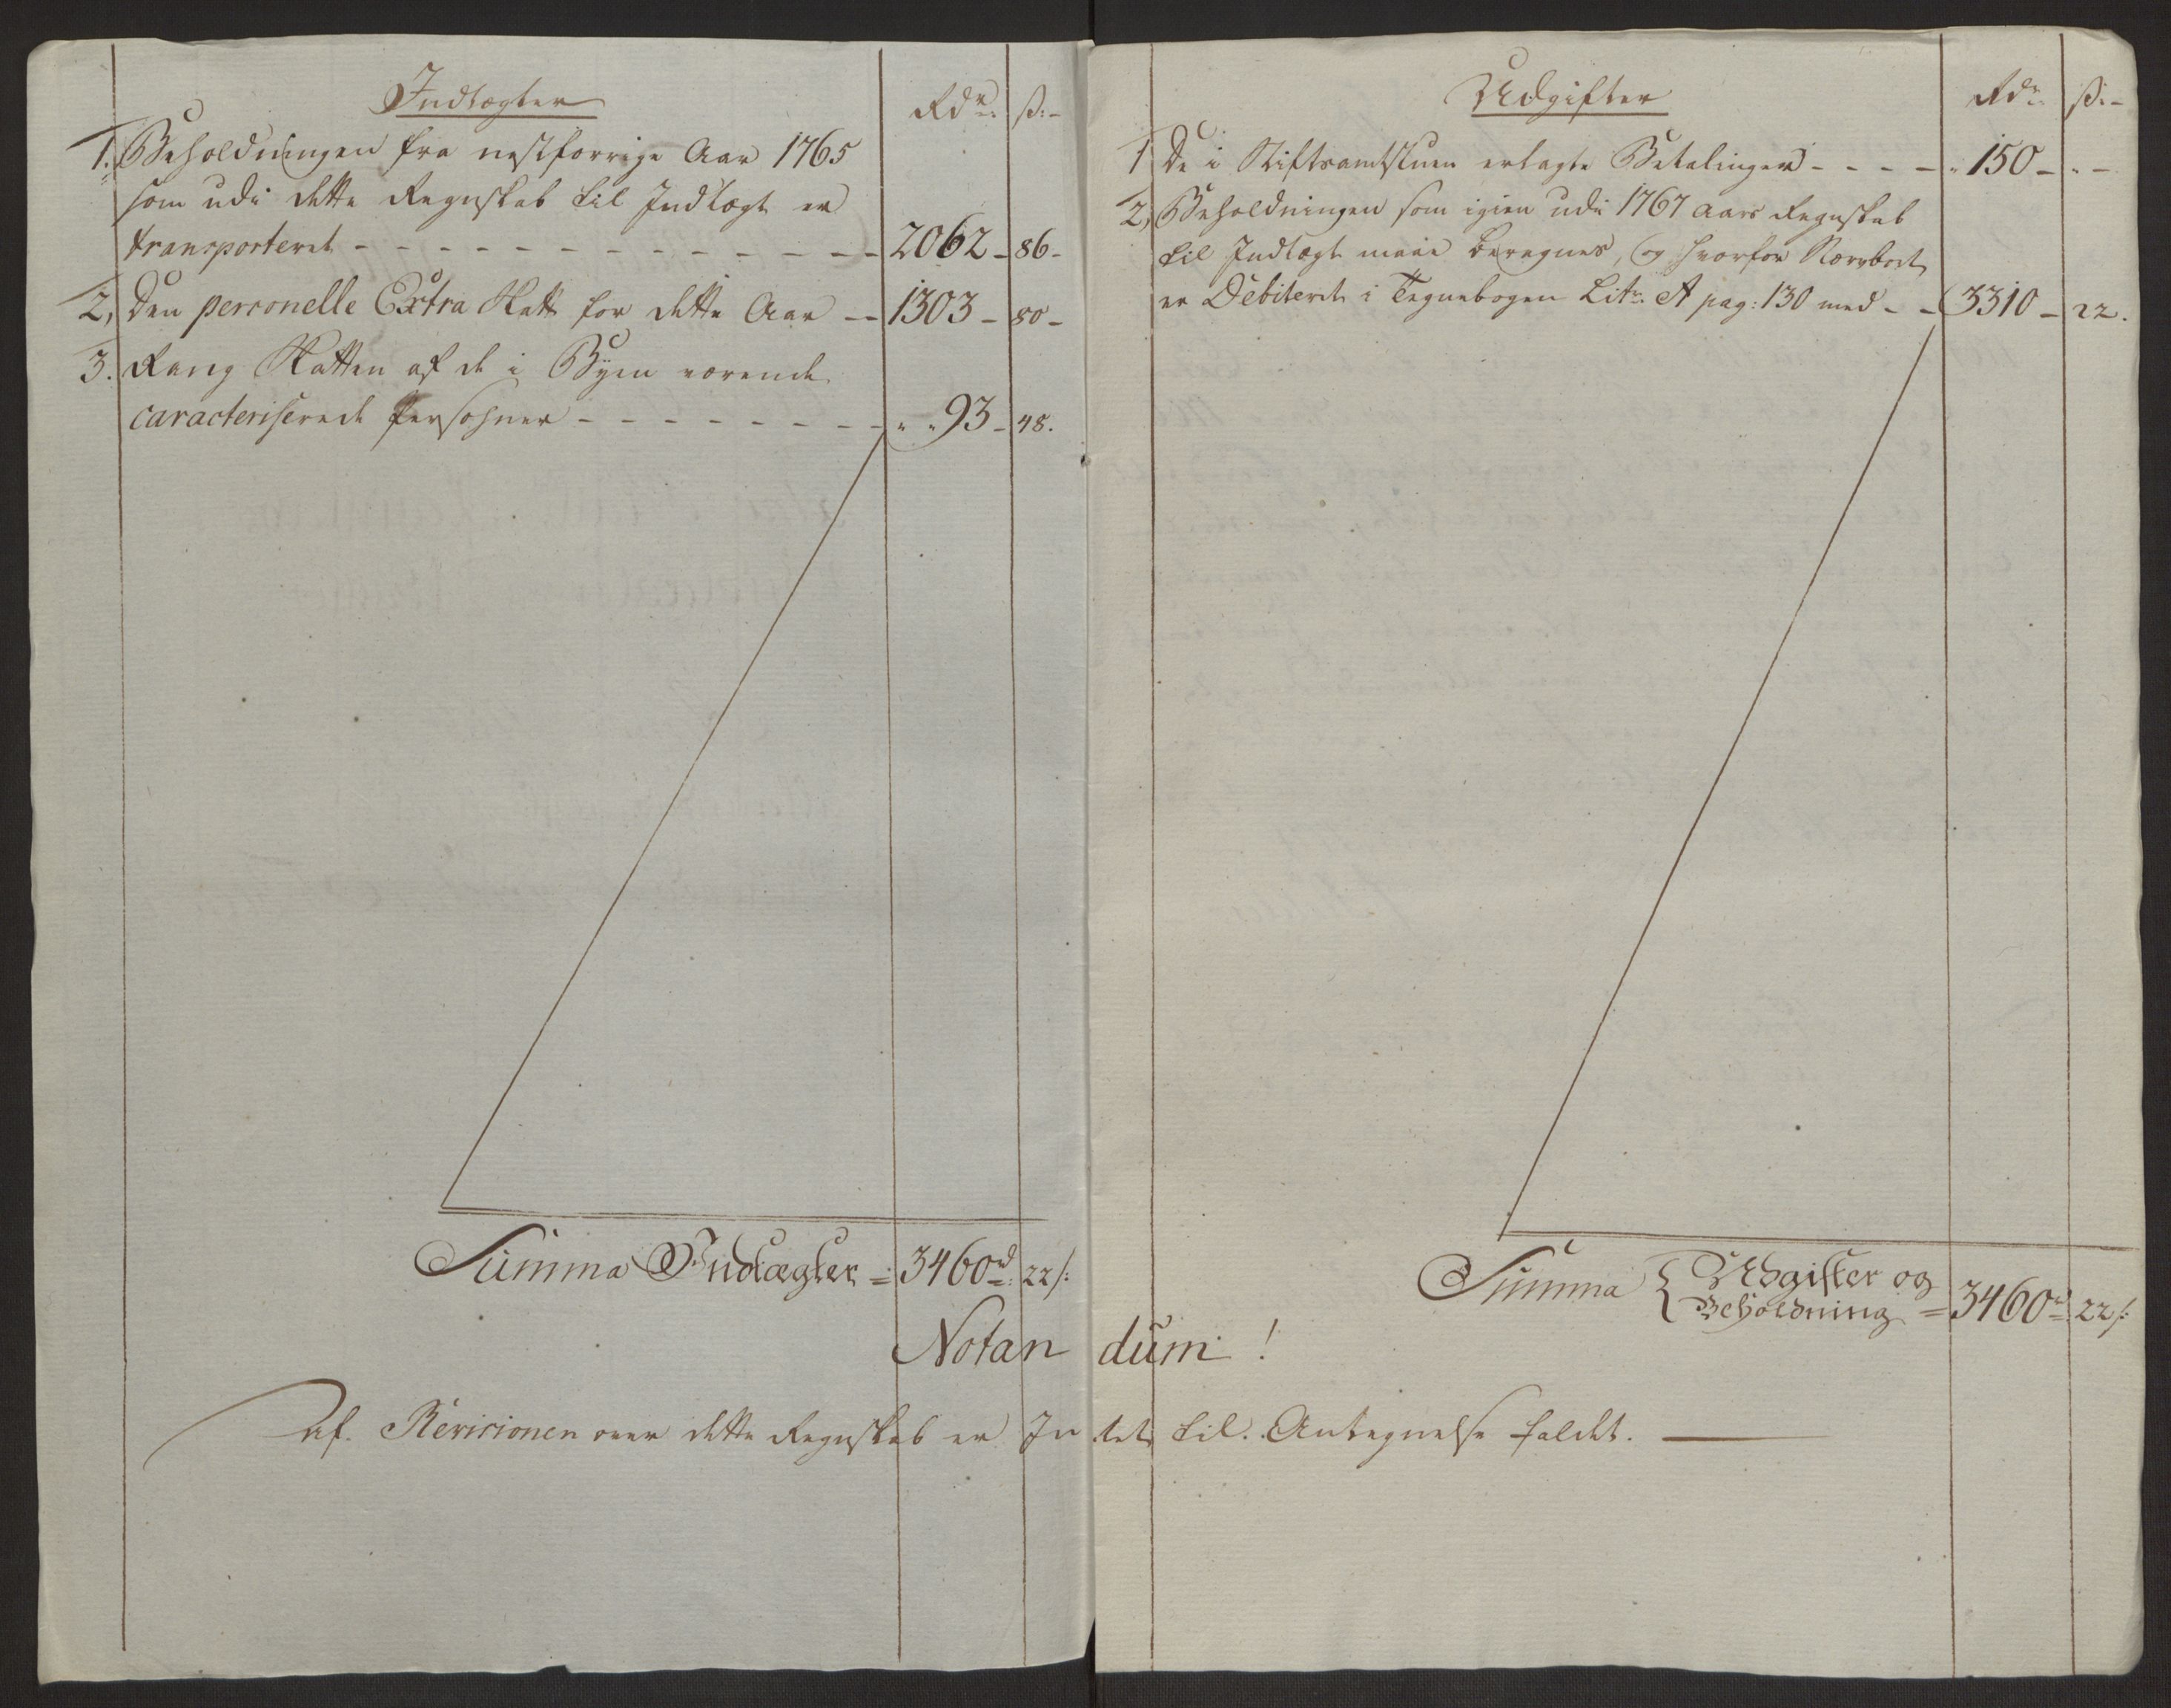 Indtægter
Rdr. ß.
1. Beholdningen fra nestforrige Aar 1765
som udi dette Regnskab til Indtægt er
transporteret - - - - - - - - - - - - - - 2062 - 86 -
2, Den personelle Extra Skatt for dette Aar -- 1303 - 80 -
3. Rang Skatten af de i Byen værende
caracteriserede Persohner - - - - - - - - - „ „ 93 - 48.
Summa Indtægter = 3460rd. 22ß:
Udgifter
Rdr. ß. -
1 De i Stiftsamtstuen erlagte Betalinger - - - - „ 150 - „ -
2, Beholdningen som igien udi 1767 Aars Regnskab
til Indtægt maae beregnes, og hvorfor
er Debiteret i Tegnebogen Litr. A pag: 130 med - - 3310 - 22.
Summa { Udgifter og
Beholdning = 3460rd. 22ß:
Notandum !
Af Revisionen over dette Regnskab er Intet til Antegnelse faldet.